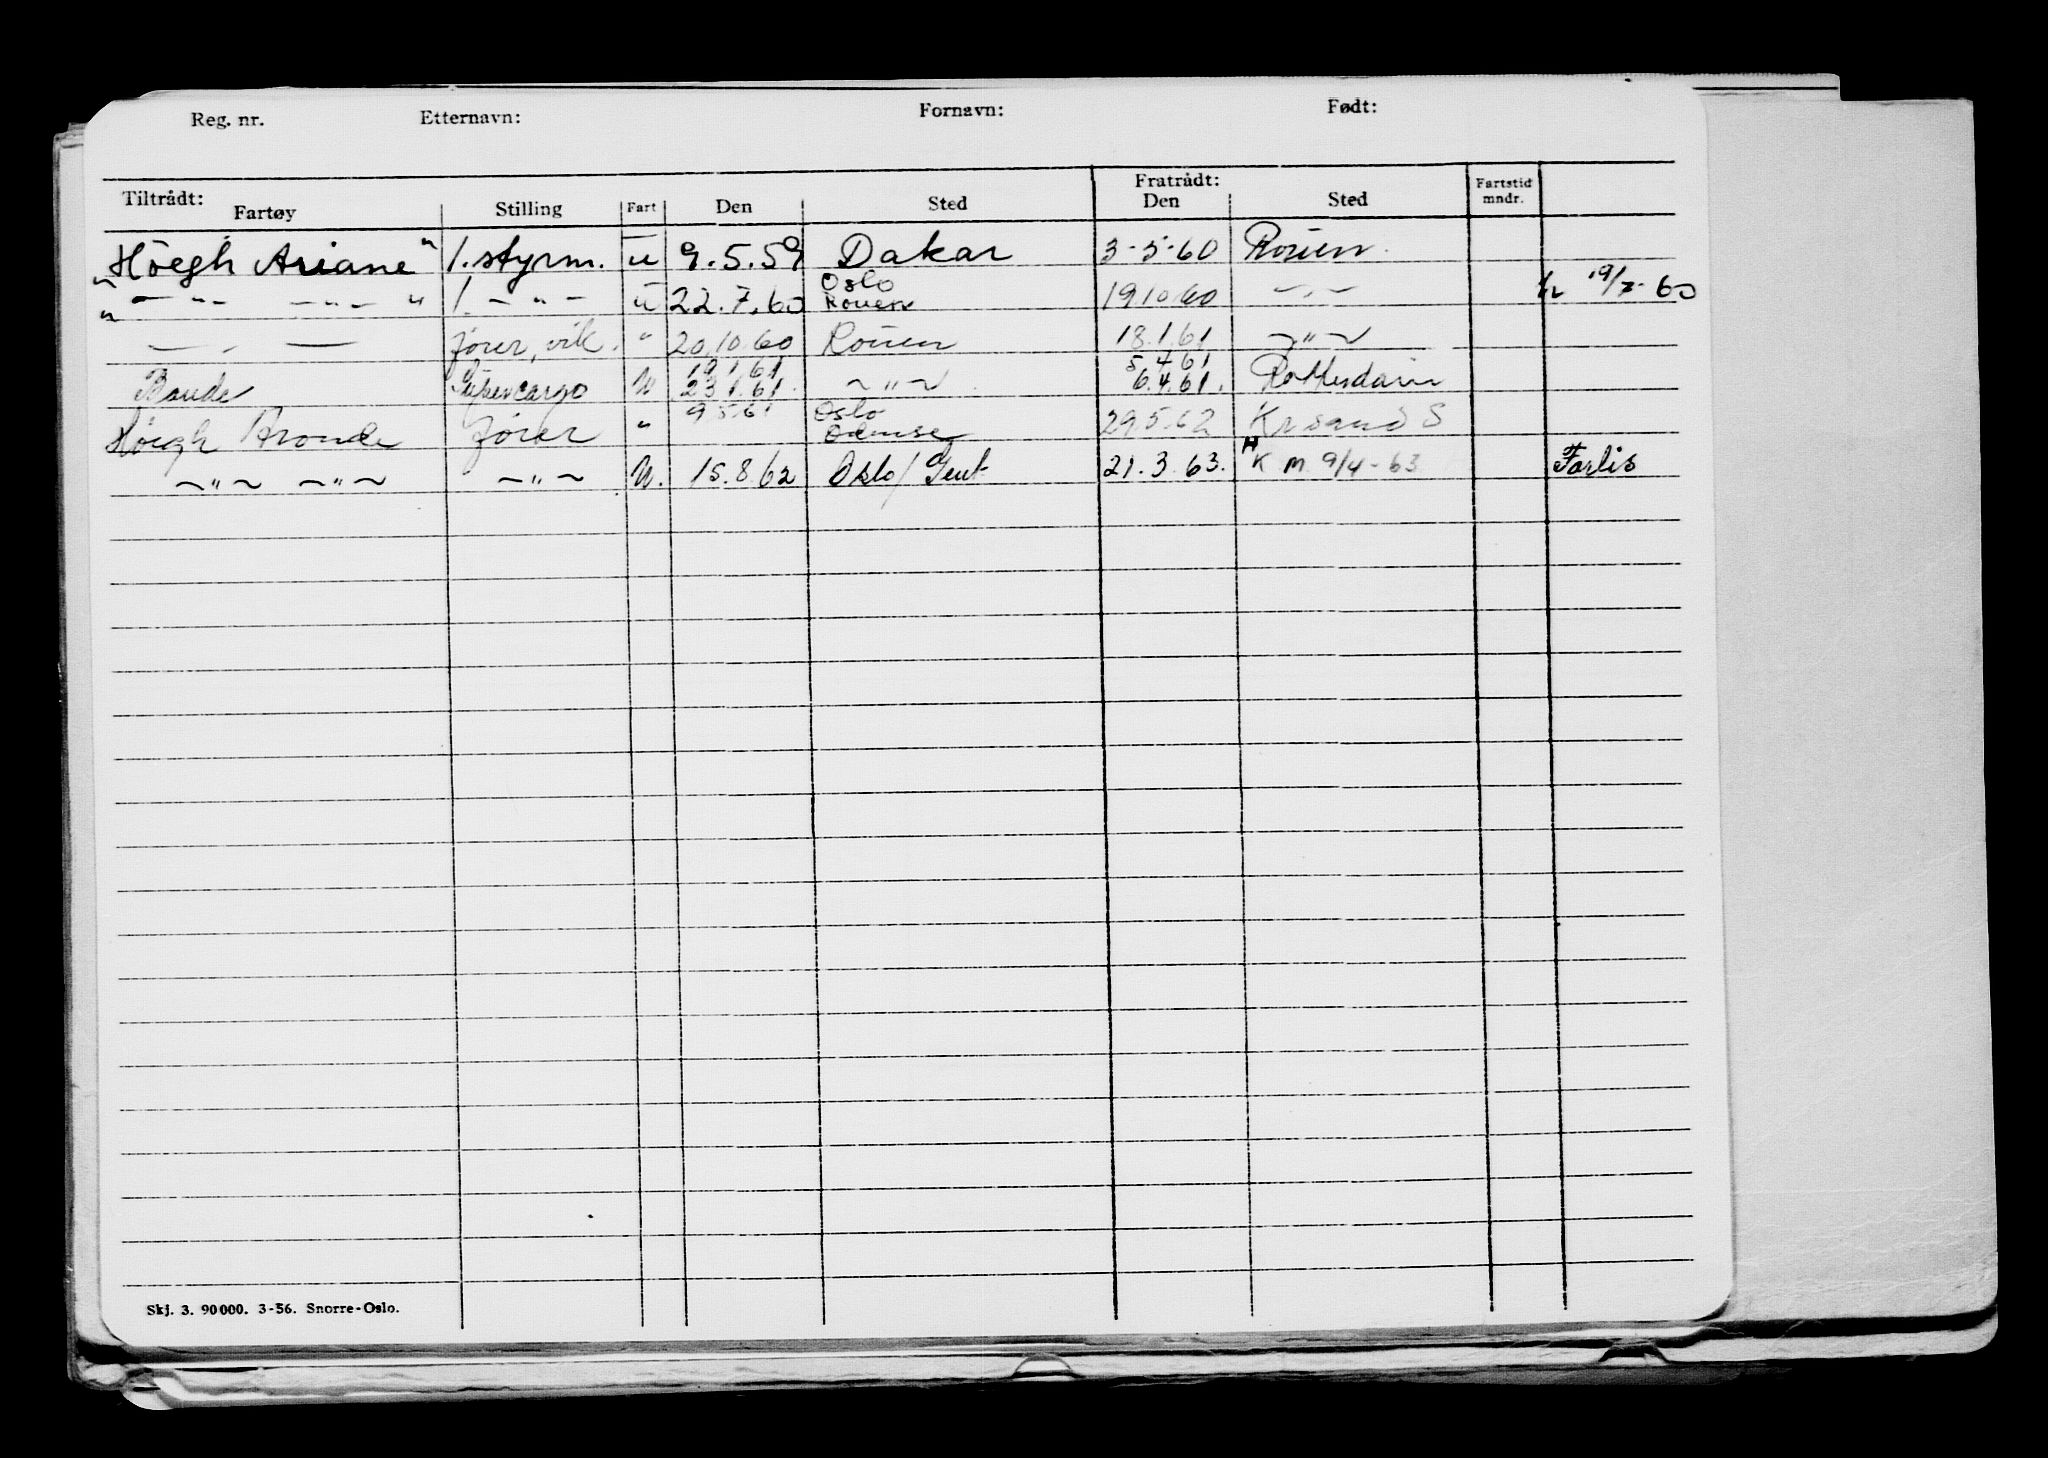 Reg. nr. Etternavn: Fornavn: Født:
Tiltrådt: Fratrådt: Fartstid
Fartøy Stilling Fart Den Sted Den Sted mndr.
"Höegh Ariane" 1. styrm. u 9.5.59 Dakar 3-5-60 Rouen.
" — " — — " — " 1. — " — u 22.7.60 Oslo Rouen 19.10.60 — " — 19/7-60
— " — fører, vik. " 20.10.60 Rouen 18.1.61 — " —
19.1.61 5.4.61
Supercargo U 23.1.61. — " — 6.4.61. Rotterdam
Höegh Aronde fører " 9.5.61 Oslo Odense 29.5.62 Krsand S
— " — — " — — " — U. 15.8.62 Oslo / Gent 21.3.63. K M 9/4-63 Farlis
Skj. 3. 90000. 3-56. Snorre-Oslo.